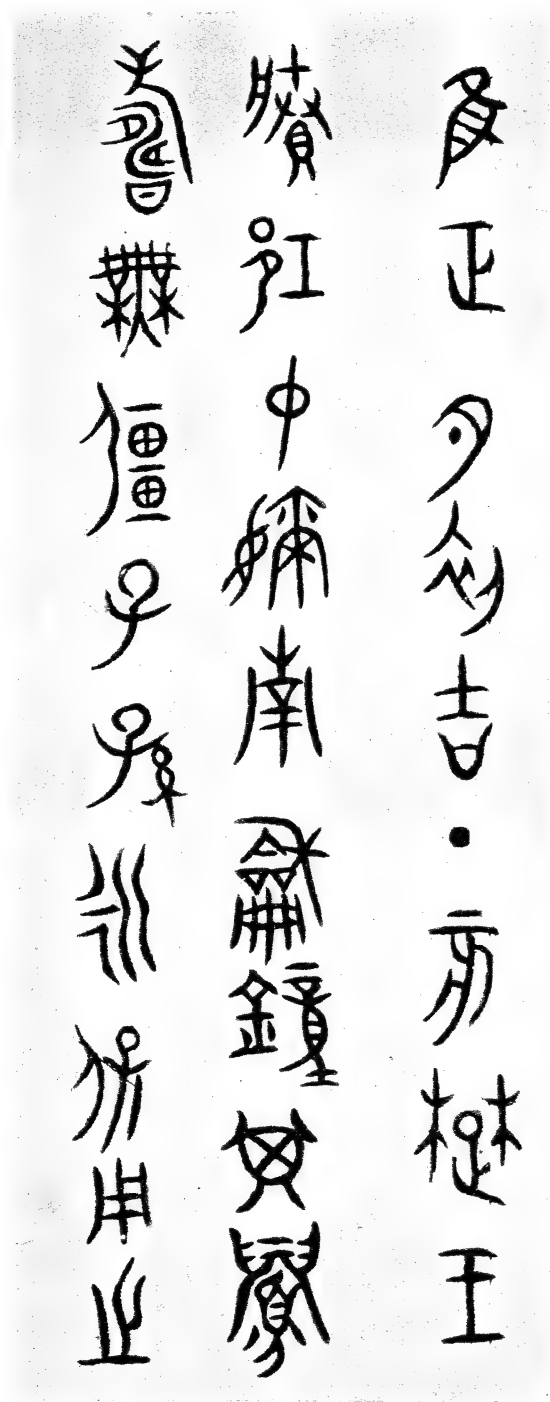 隹正月初吉丁亥楚王
賸邛中嬭南龢鐘其眉
壽無彊子孫永保用之